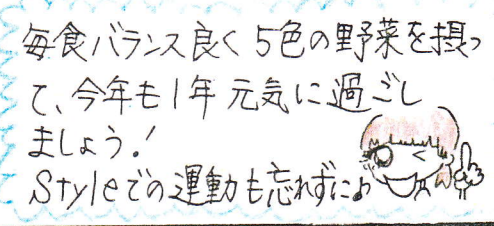 毎食バランス良く5色の野菜を摂っ
て、今年も1年元気に過ごし
ましょう!
Styleでの運動も忘れずに♪